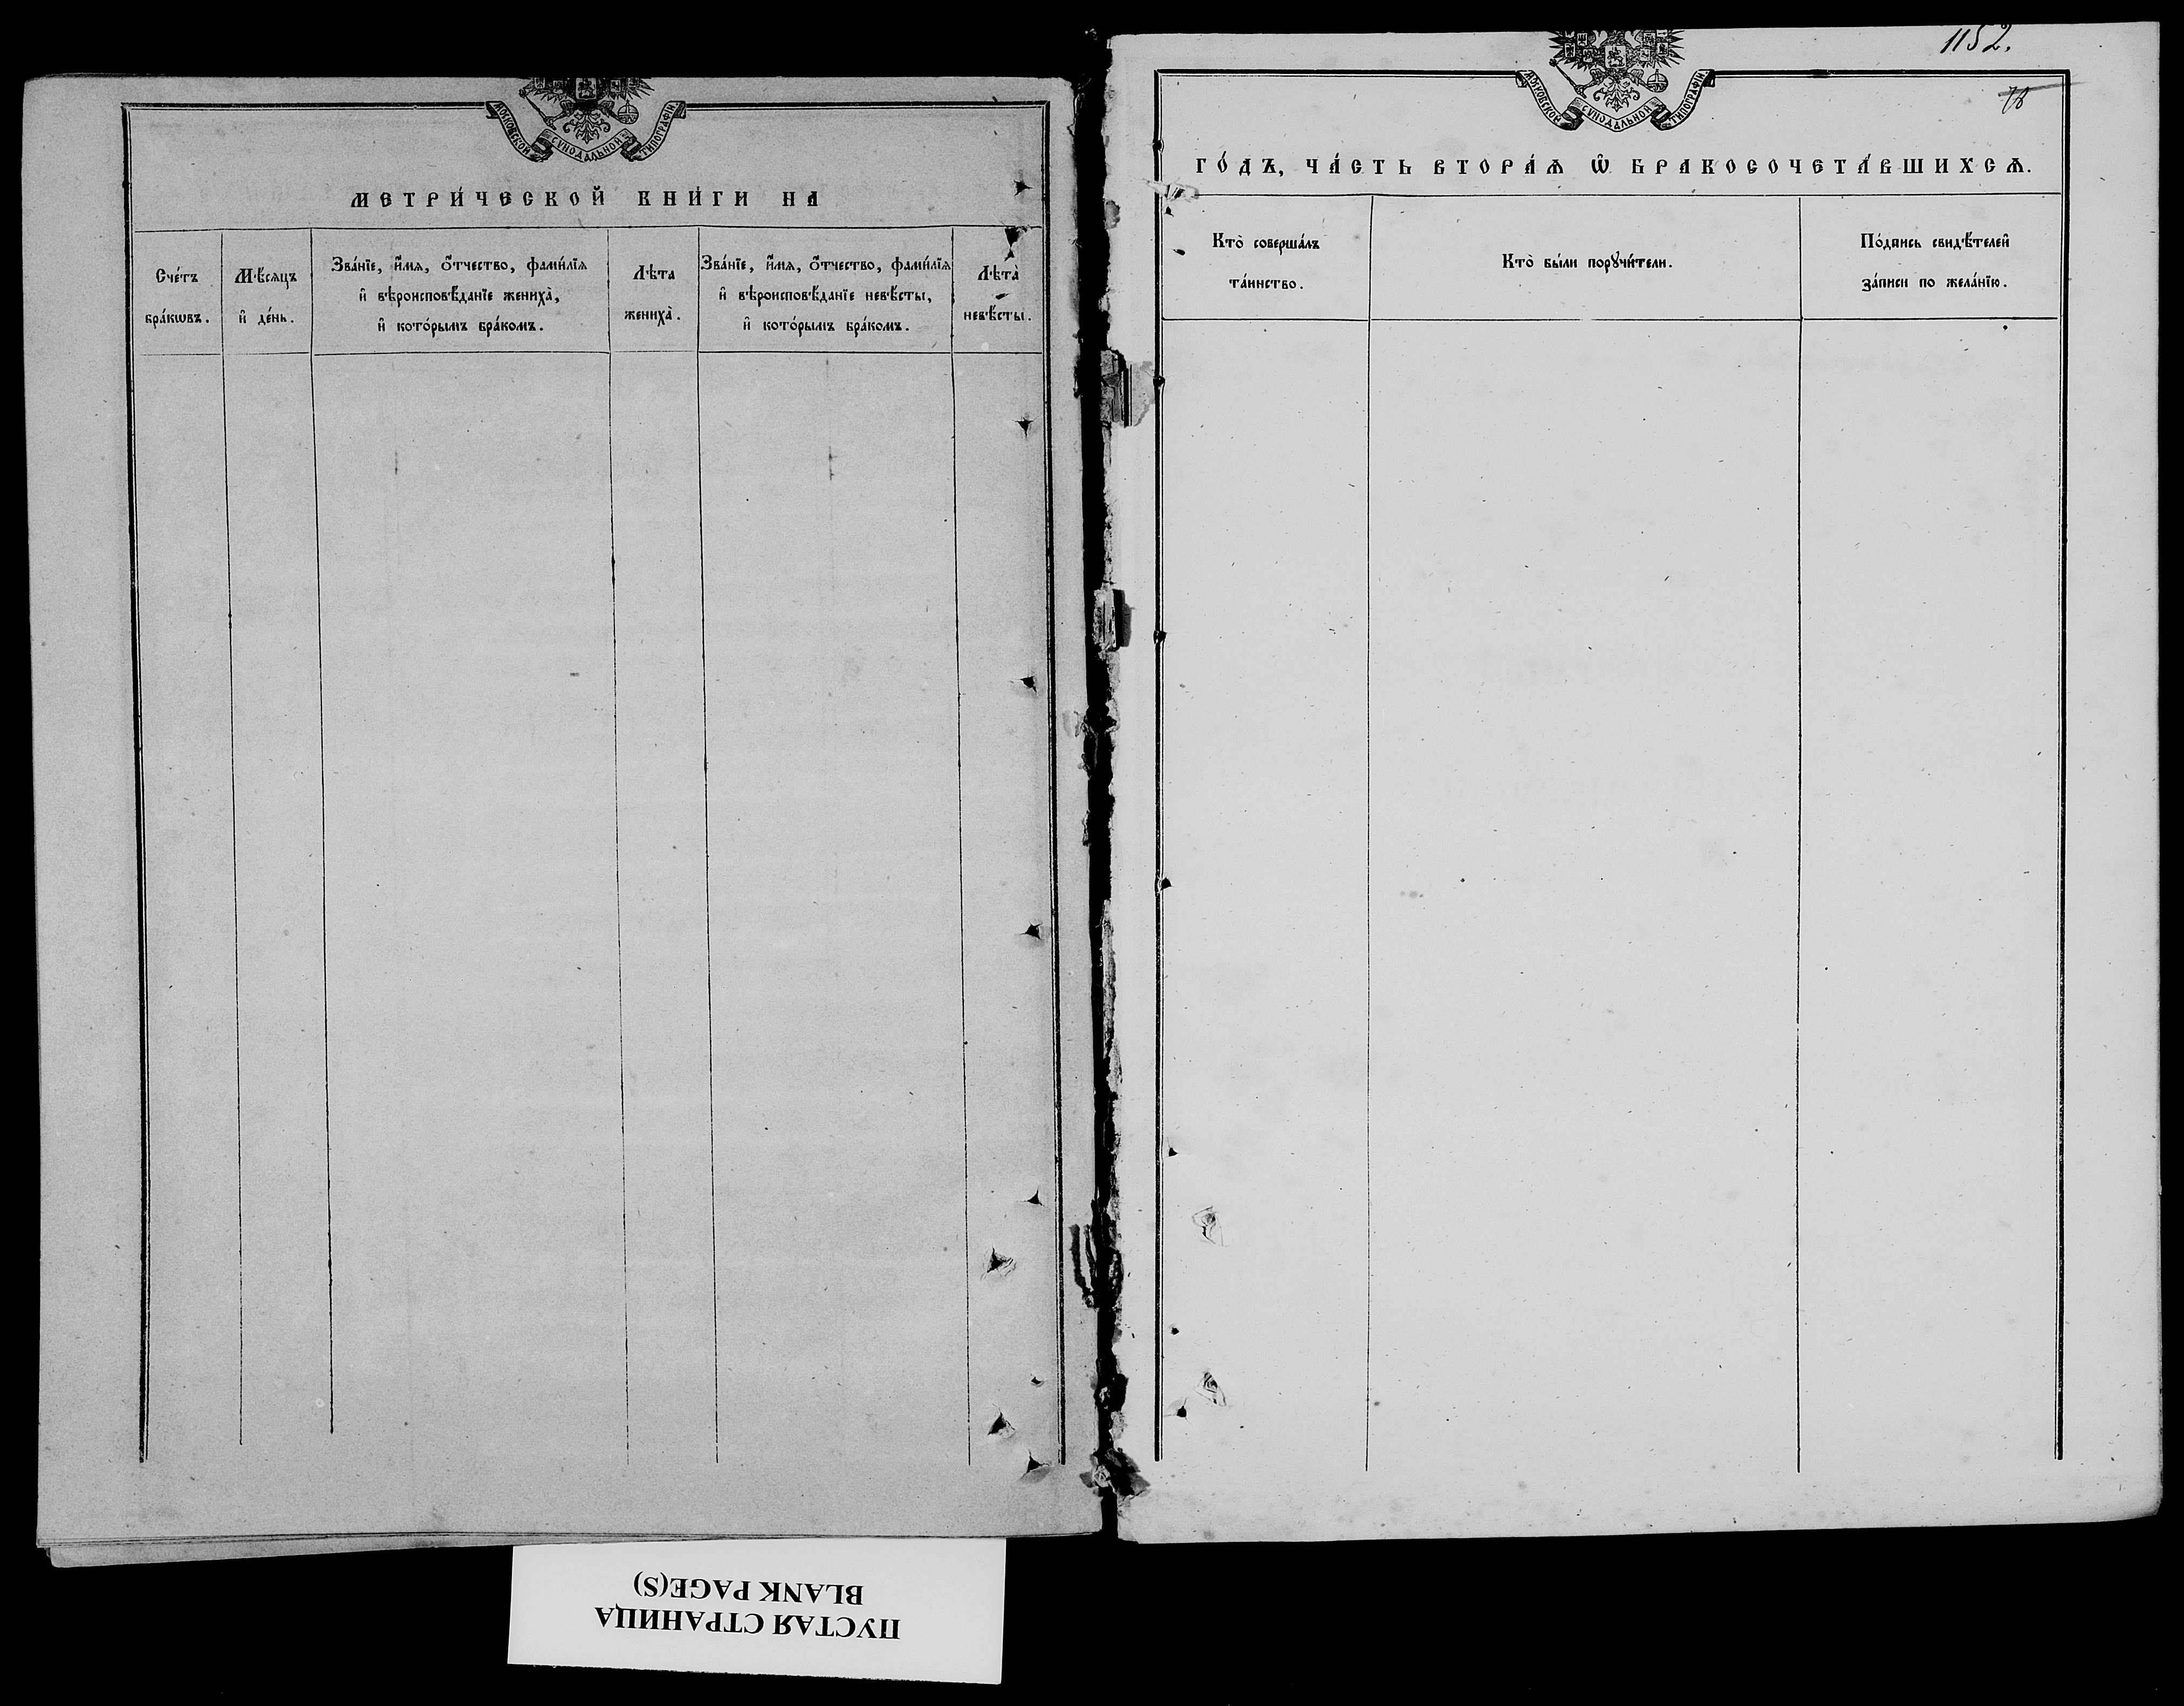 МОСКОВСКОЙ СѴНОДАЛЬНОЙ ТИПОГРАФІИ
МЕТРИ́ЧЕСКОЙ КНИ́ГИ НА
Сче́тъ
бра́кѡвъ.
Мѣ́сяцъ
и҆ де́нь.
Зва́нїе, и҆́мя, ѻ҆́тчество, фами́лїя
и҆ вѣроисповѣ́данїе жениха̀,
и҆ кото́рымъ бра́комъ.
Лѣта
жениха̀.
Зва́нїе, и҆́мя, ѻ҆́тчество, фами́лїя
и҆ вѣроисповѣ́данїе невѣ́сты,
и҆ кото́рымъ бра́комъ.
Лѣта̀
невѣ́сты.
1152.
78
МОСКОВСКОЙ СѴНОДАЛЬНОЙ ТИПОГРАФІИ
ГО́ДЪ, ЧА́СТЬ ВТОРА́Ѧ Ѽ БРАКОСОЧЕТА́ВШИХСѦ.
Кто̀ соверша́лъ
та́инство.
Кто̀ бы́ли порꙋчи́тели.
По́дпись свидѣ́телей
за́писи по жела́нїю.
ПУСТАЯ СТРАНИЦА
BLANK PAGE(S)